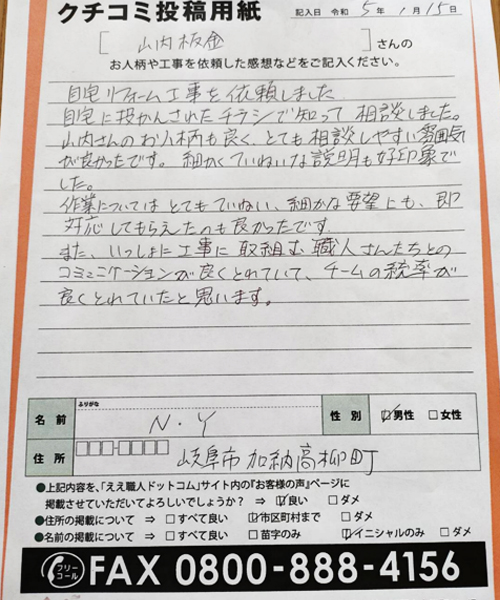 クチコミ投稿用紙
記入日 令和 5年 1月 15日
[ 山内板金 ] さんの
お人柄や工事を依頼した感想などをご記入ください。
自宅リフォーム工事を依頼しました
自宅に投かんされたチラシで知って相談しました。
山内さんのお人柄も良く、とても相談しやすい雰囲気
が良かったです。細かくていねいな説明も好印象で
した。
作業についてはとてもていねい、細かな要望にも、即
対応してもらえたのも良かったです
また、いっしょに工事に取組む職人さんたちとの
コミュニケーションが良くとれていて、チームの統率が
良くとれていたと思います。
ふりがな
名前 N・Y 性別 ☑男性 □女性
住所 □□□-□□□□ 岐阜市加納高柳町
●上記内容を、「ええ職人ドットコム」サイト内の『お客様の声』ページに
掲載させていただいてよろしいでしょうか? ⇒ ☑良い □ダメ
●住所の掲載について ⇒ □すべて良い ☑市区町村まで □ダメ
●名前の掲載について ⇒ □すべて良い □苗字のみ ☑イニシャルのみ □ダメ
フリーコール FAX 0800-888-4156